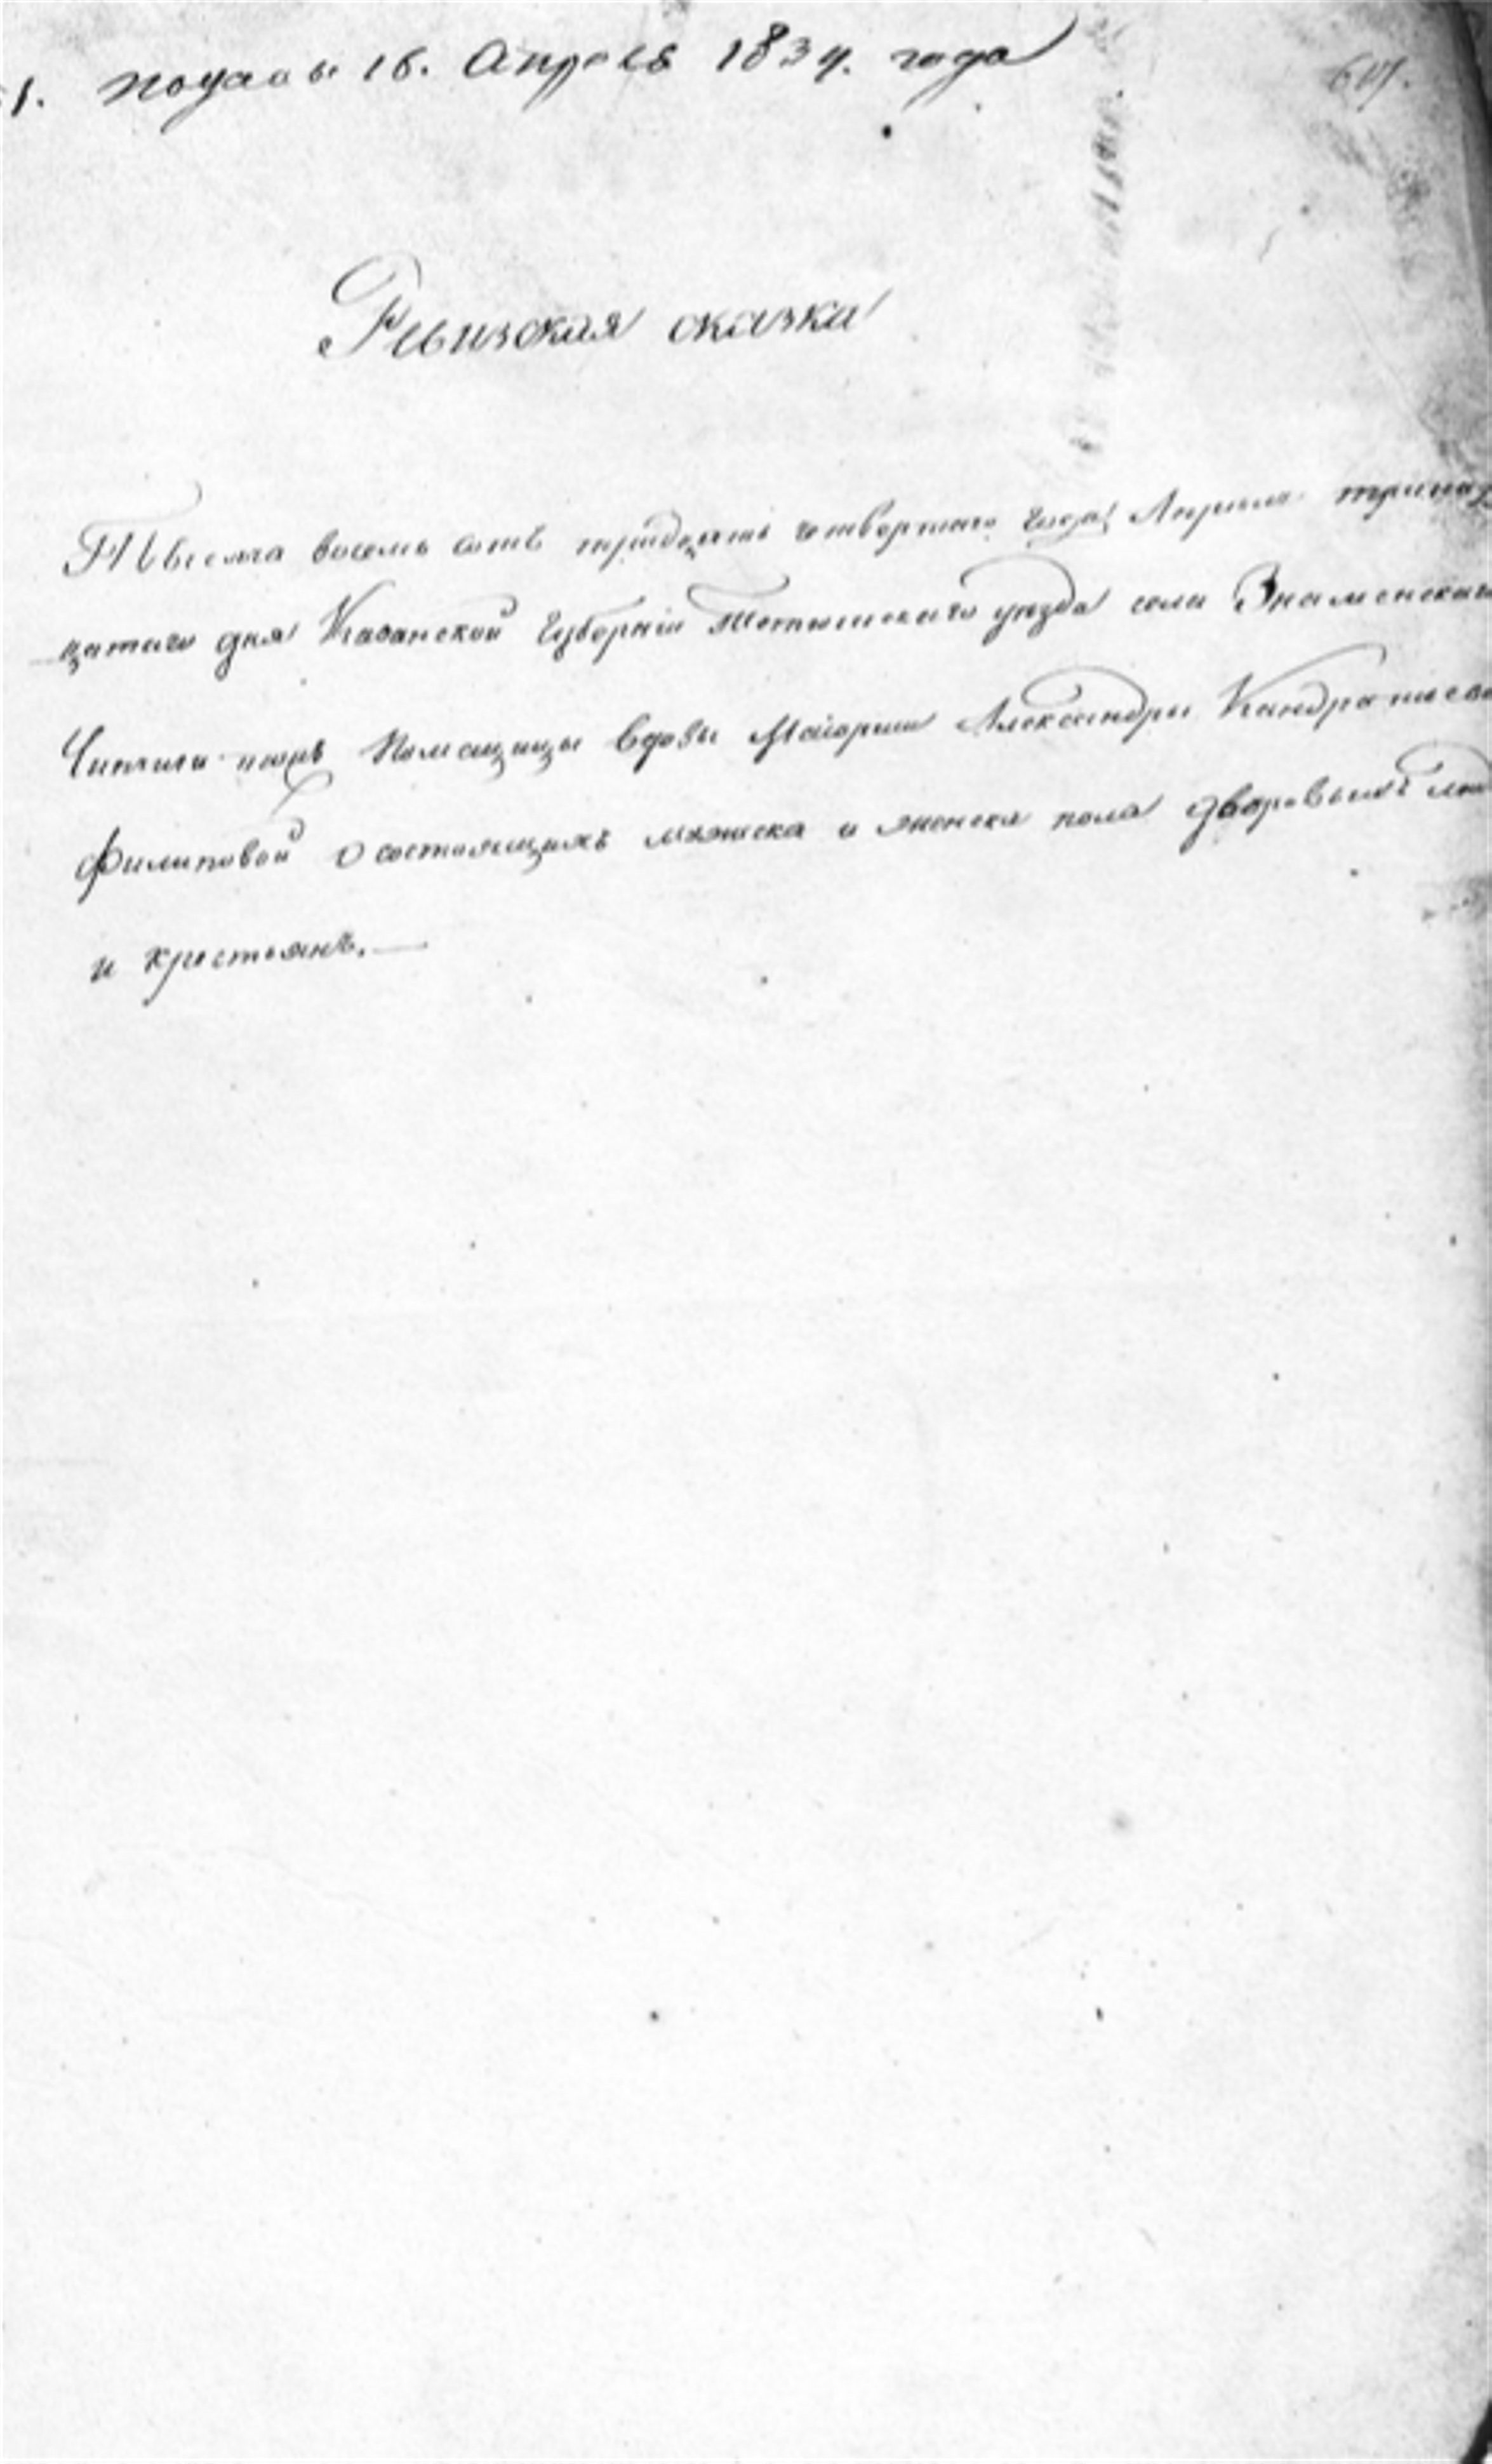 1. Подана 16. Апреля 1834. года
Ревизская сказка
Тысяча восемь сотъ тридцать четвертаго года Апреля тринад
цатаго дня Казанской Губерніи Тетюшскаго уезда села Знаменскаго
тожъ Помещицы вдовы Маіорши Александры Кандратьево
Филиповой о состоящихъ мужеска и женска пола дворовыхъ люд
и крестьянъ.—